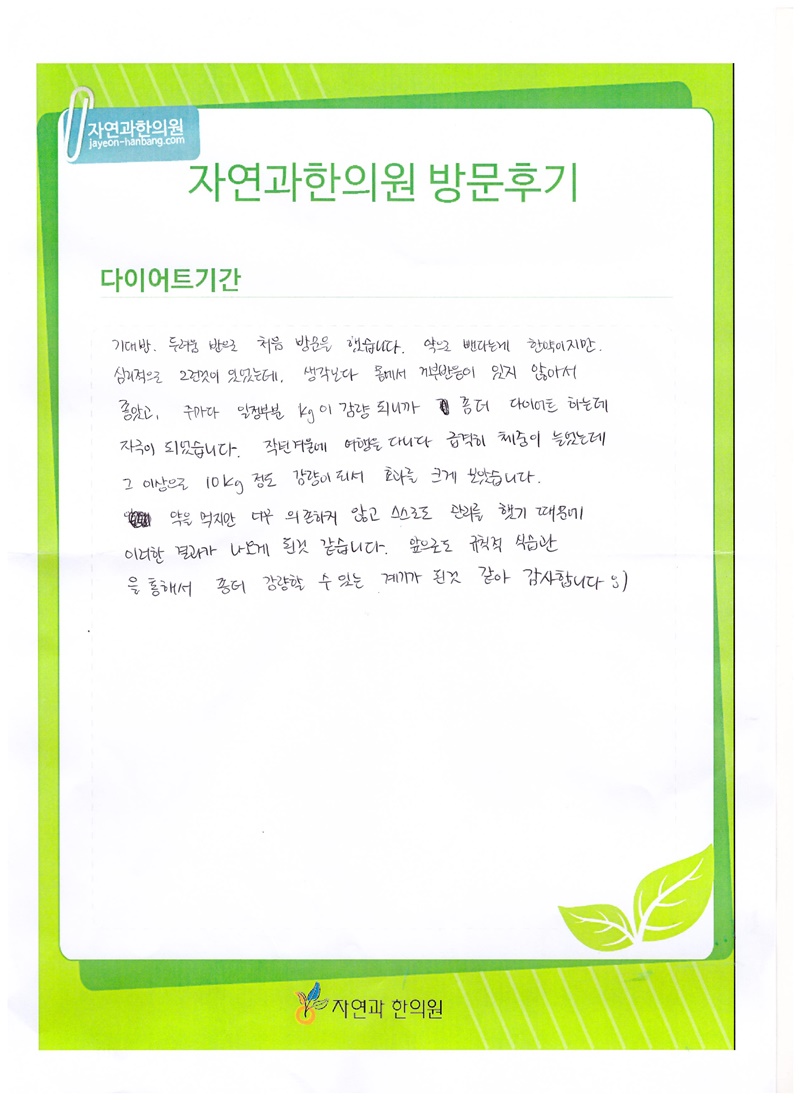 자연과한의원
jayeon-hanbang.com
자연과한의원 방문후기
다이어트기간
기대반. 두려움 반으로 처음 방문을 했습니다. 약으로 뺀다는게 한약이지만.
심리적으로 그런것이 있었는데, 생각보다 몸에서 거부반응이 있지 않아서
좋았고, 주마다 일정부분 kg이 감량 되니까 좀더 다이어트 하는데
자극이 되었습니다. 작년겨울에 여행을 다니다 급격히 체중이 늘었는데
그 이상으로 10kg 정도 감량이 되서 효과를 크게 보았습니다.
약을 먹지만 너무 의존하지 않고 스스로도 관리를 했기 때문에
이러한 결과가 나오게 된것 같습니다. 앞으로도 규칙적 식습관
을 통해서 좀더 감량할 수 있는 계기가 된것 같아 감사합니다 :)
자연과 한의원